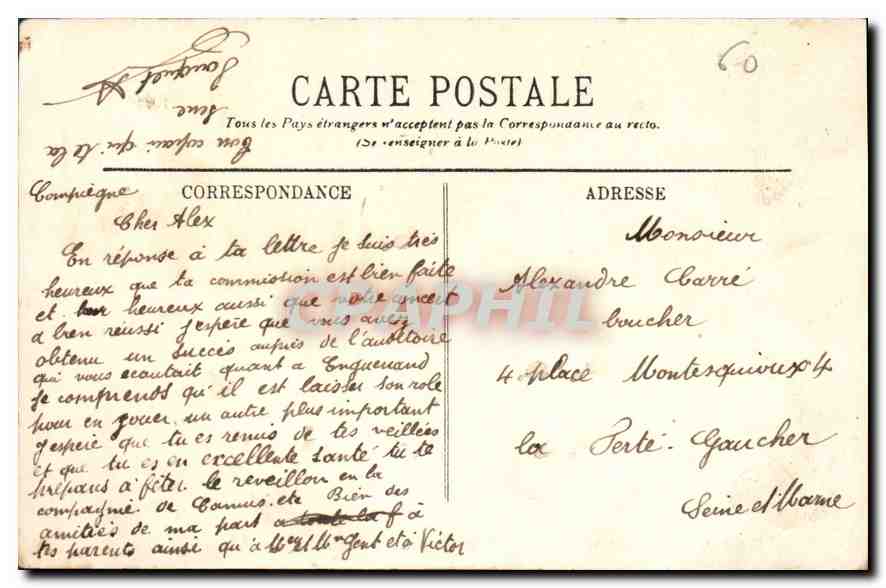 60
CARTE POSTALE
Tous les Pays étrangers n'acceptent pas la Correspondance au recto.
(Se renseigner à la Poste)
CORRESPONDANCE
Compiègne
Cher Alex
En réponse à ta lettre je suis très
heureux que ta commission est bien faite
et heureux aussi que votre concert
a bien réussi j'espère que vous avez
obtenu un succès aupres de l'auditoire
qui vous écoutait quant a Enguerrand
je comprends qu'il est laisser son role
pour en jouer un autre plus important
j'espère que tu es remis de tes veillées
et que tu es en excellente santé tu te
prépares à fêter le reveillon en la
compagnie de Camus etc Bien des
amitiés de ma part à
tes parents ainsi qu'à et à Victor
ton copain qui te la
serre
ADRESSE
Monsieur
Alexandre Carré
boucher
4 place Montesquioux 4
la Ferté-Gaucher
Seine et Marne
CPAPHIL